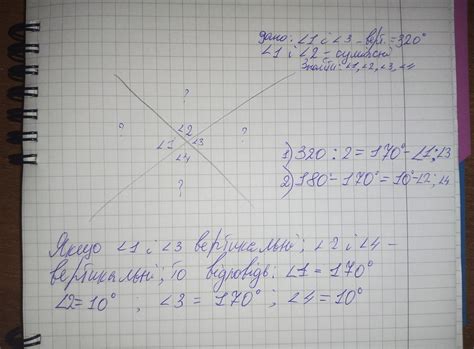 Дано: ∠1 і ∠3 - верт. = 320°
∠1 і ∠2 - суміжні
Знайти: ∠1, ∠2, ∠3, ∠4
?
? ∠2 ?
∠1 ∠3
∠4
?
1) 320 : 2 = 170° - ∠1; ∠3
2) 180° - 170° = 10° - ∠2; ∠4
Якщо ∠1 і ∠3 вертикальні; ∠2 і ∠4 -
вертикальні, то відповідь: ∠1 = 170°
∠2 = 10° ; ∠3 = 170° ; ∠4 = 10°